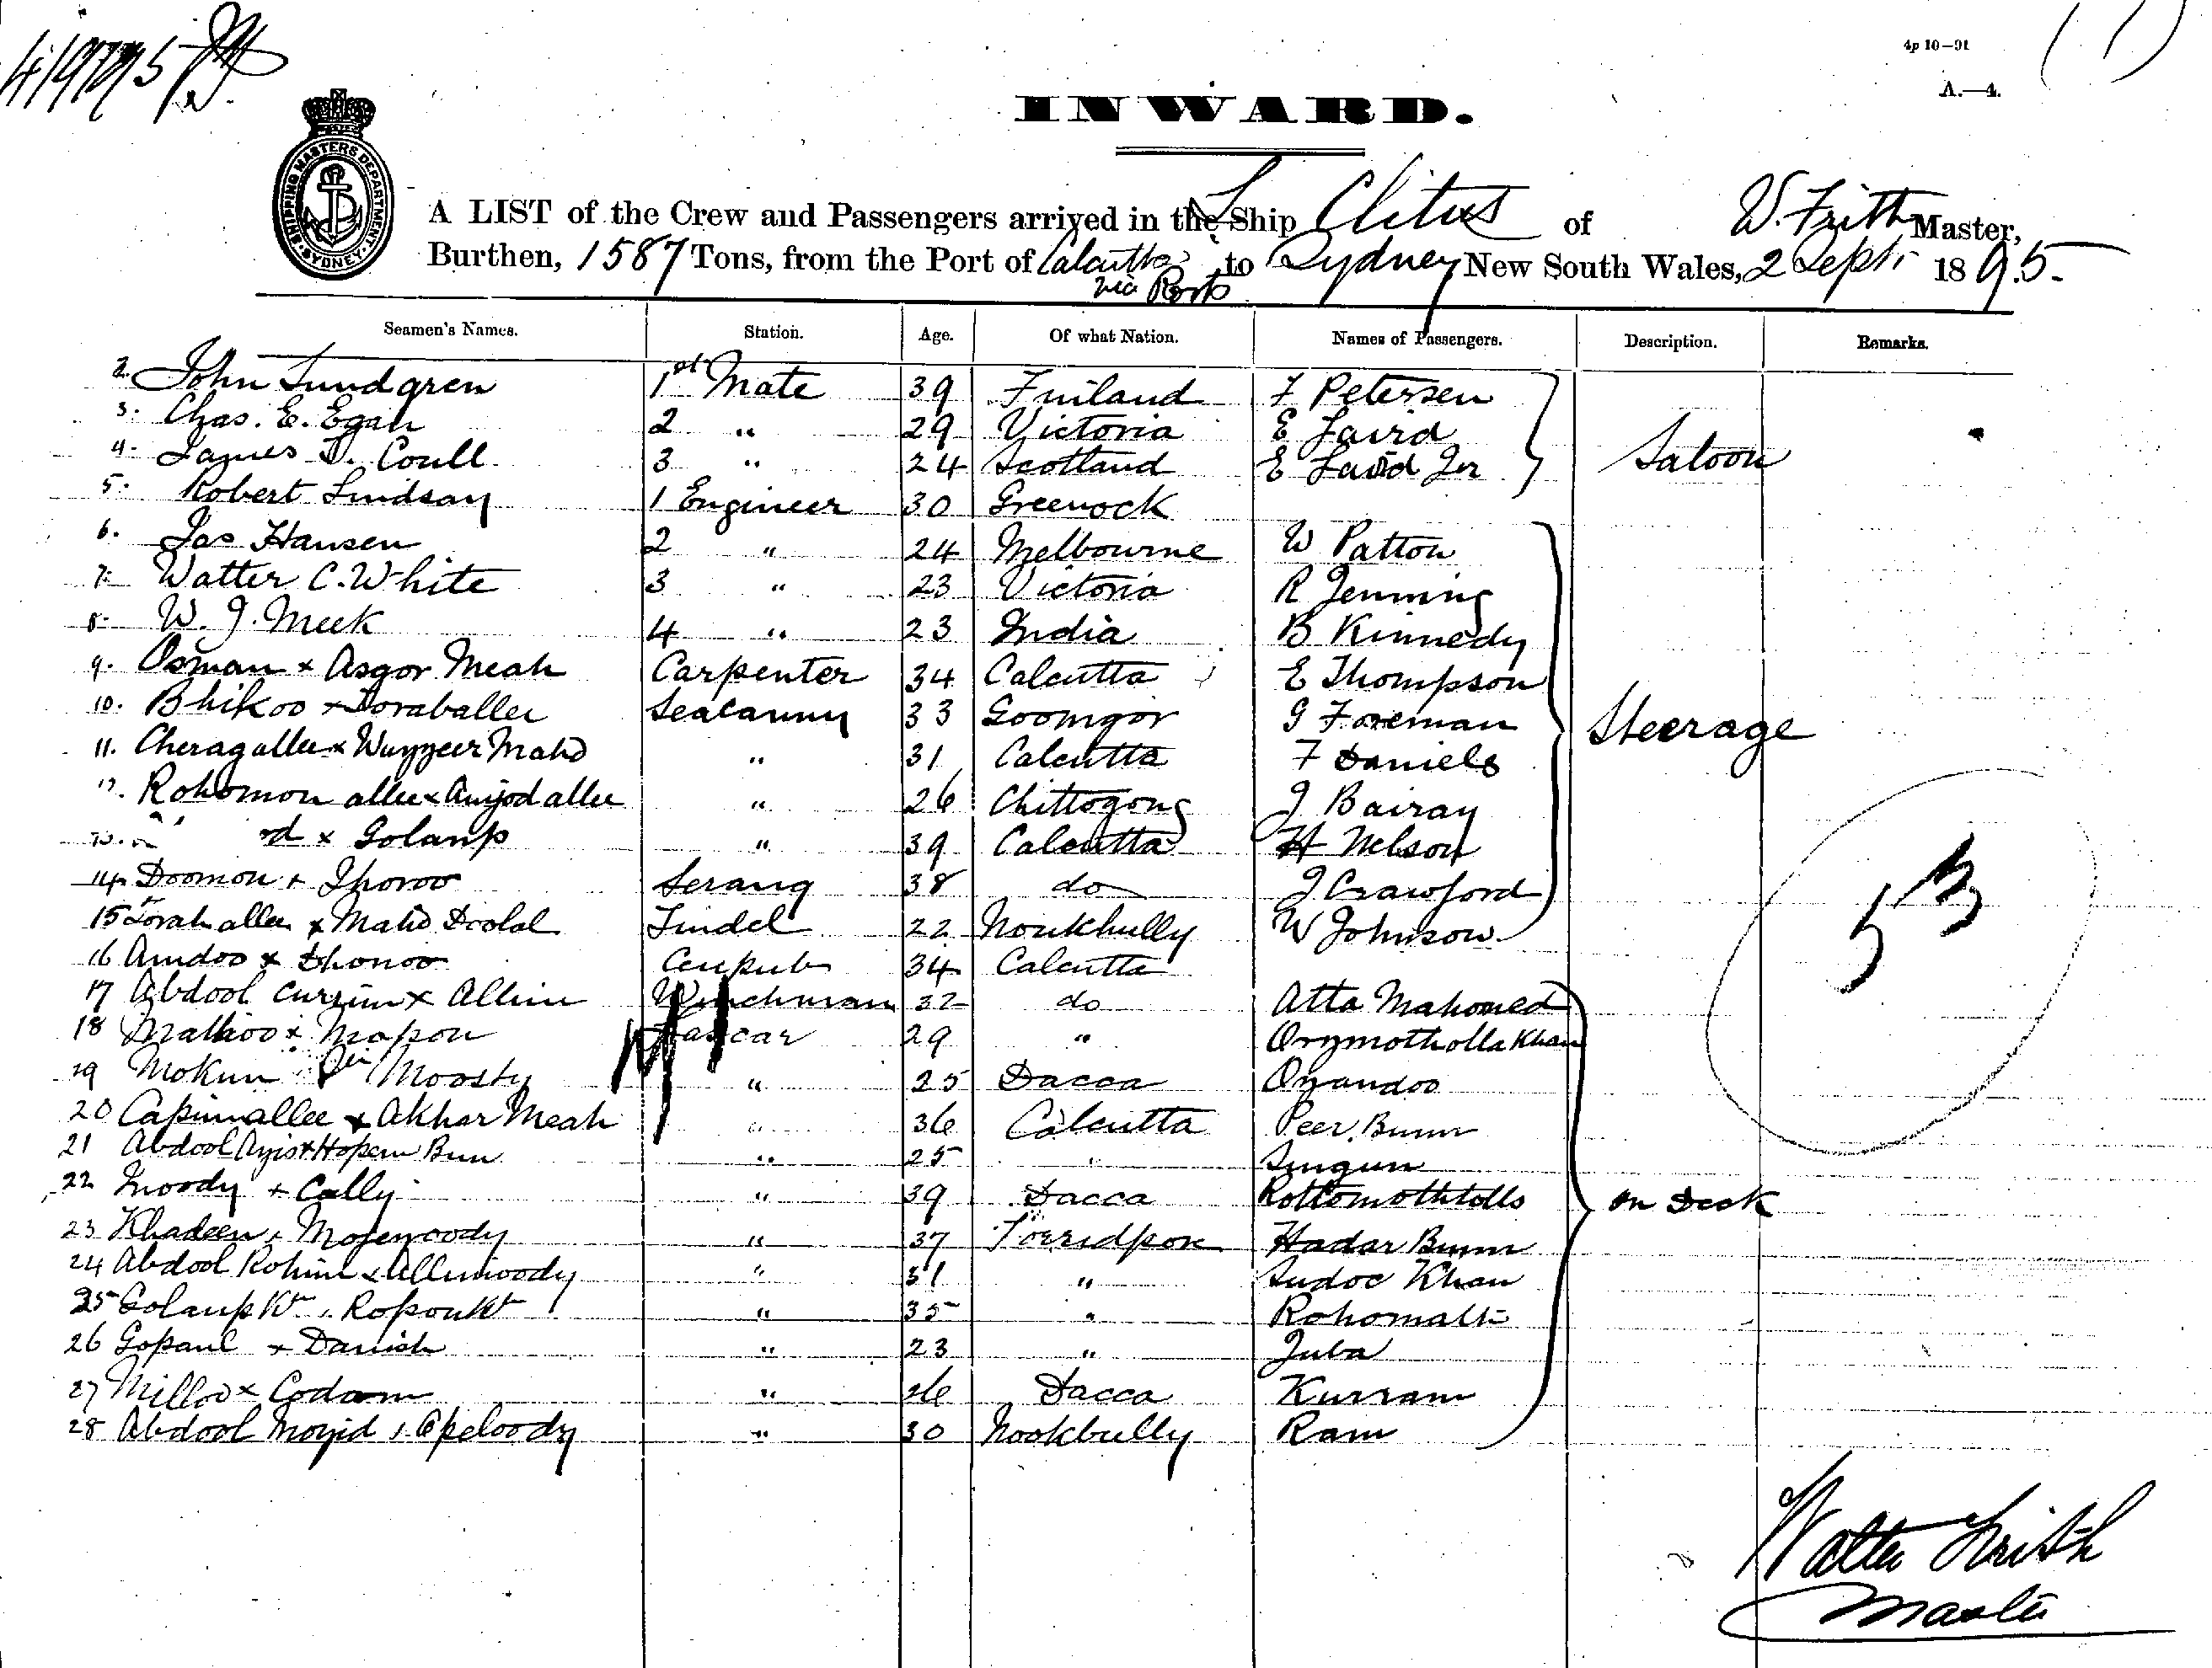 4p 10—91
A.—4.
(1)
INWARD.
SHIPPING MASTERS DEPARTMENT. SYDNEY.
A LIST of the Crew and Passengers arrived in the Ship Clitus of W. Frith Master,
Burthen, 1587 Tons, from the Port of Calcutta via Ports to Sydney New South Wales, 2 Sept. 1895.
Seamen's Names. Station. Age. Of what Nation. Names of Passengers. Description. Remarks.
2. John Lundgren 1st Mate 39 Finland F Petersen
3. Chas. E. Egan 2 " 29 Victoria E Laird
4. James D. Coull 3 " 24 Scotland E Laird Jnr Saloon
5. Robert Lindsay 1 Engineer 30 Greenock
6. Jas Hansen 2 " 24 Melbourne W Patton
7. Walter C. White 3 " 23 Victoria R Jenning
8. W. J. Meek 4 " 23 India B Kinnedy
9. Osman x Asgor Meah Carpenter 34 Calcutta E Thompson
10. Bhikoo x Doraballee Seacunny 33 Goomgor G Foreman Steerage
11. Cheragallee x Wuzzeer Mahd " 31 Calcutta F Daniels
12. Rohomon allee x Amjod allee " 26 Chittogong J Bairay
13. x Golamp " 39 Calcutta H Nelson
14 Doomon x Jhoroo Serang 38 do J Crawford
15 Torah allee x Mahd Doolol Tindel 22 Noukhully W Johnson
16 Amdoo x Dhonoo 34 Calcutta
17 Abdool Currim x Allim Winchman 32 do Atta Mahomed
18 x Mopon Lascar 29 " Orymotholla Khan
19 Mokim Moosty " 25 Dacca Onandoo
20 Capimallee x Akhar Meah " 36 Calcutta Peer Bunn
21 Abdool Ayis x Hopem Bun " 25 " Sungun
22 Moody x Cally " 39 Dacca Rottomothtolls On Deck
23 Khadeen x Mojemoody " 37 Forridpore Hadar Bunn
24 Abdool Rohim x Allimoody " 31 " Sudoc Khan
25 Golamp Kt x Roponkt " 35 " Rohomalli
26 Gopaul x Danish " 23 " Juba
27 Milloo x Codam " 26 Dacca Kurram
28 Abdool Moyid x Apeloody " 30 Nookhully Ram
53
Walter Frith
Master